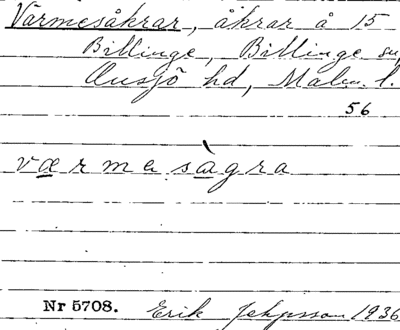 Varmesåkrar, åkrar å 15
Billinge, Billinge sn,
Onsjö hd, Malm. l.
56
værmesàgra
Nr 5708. Erik Jeppsson 1936